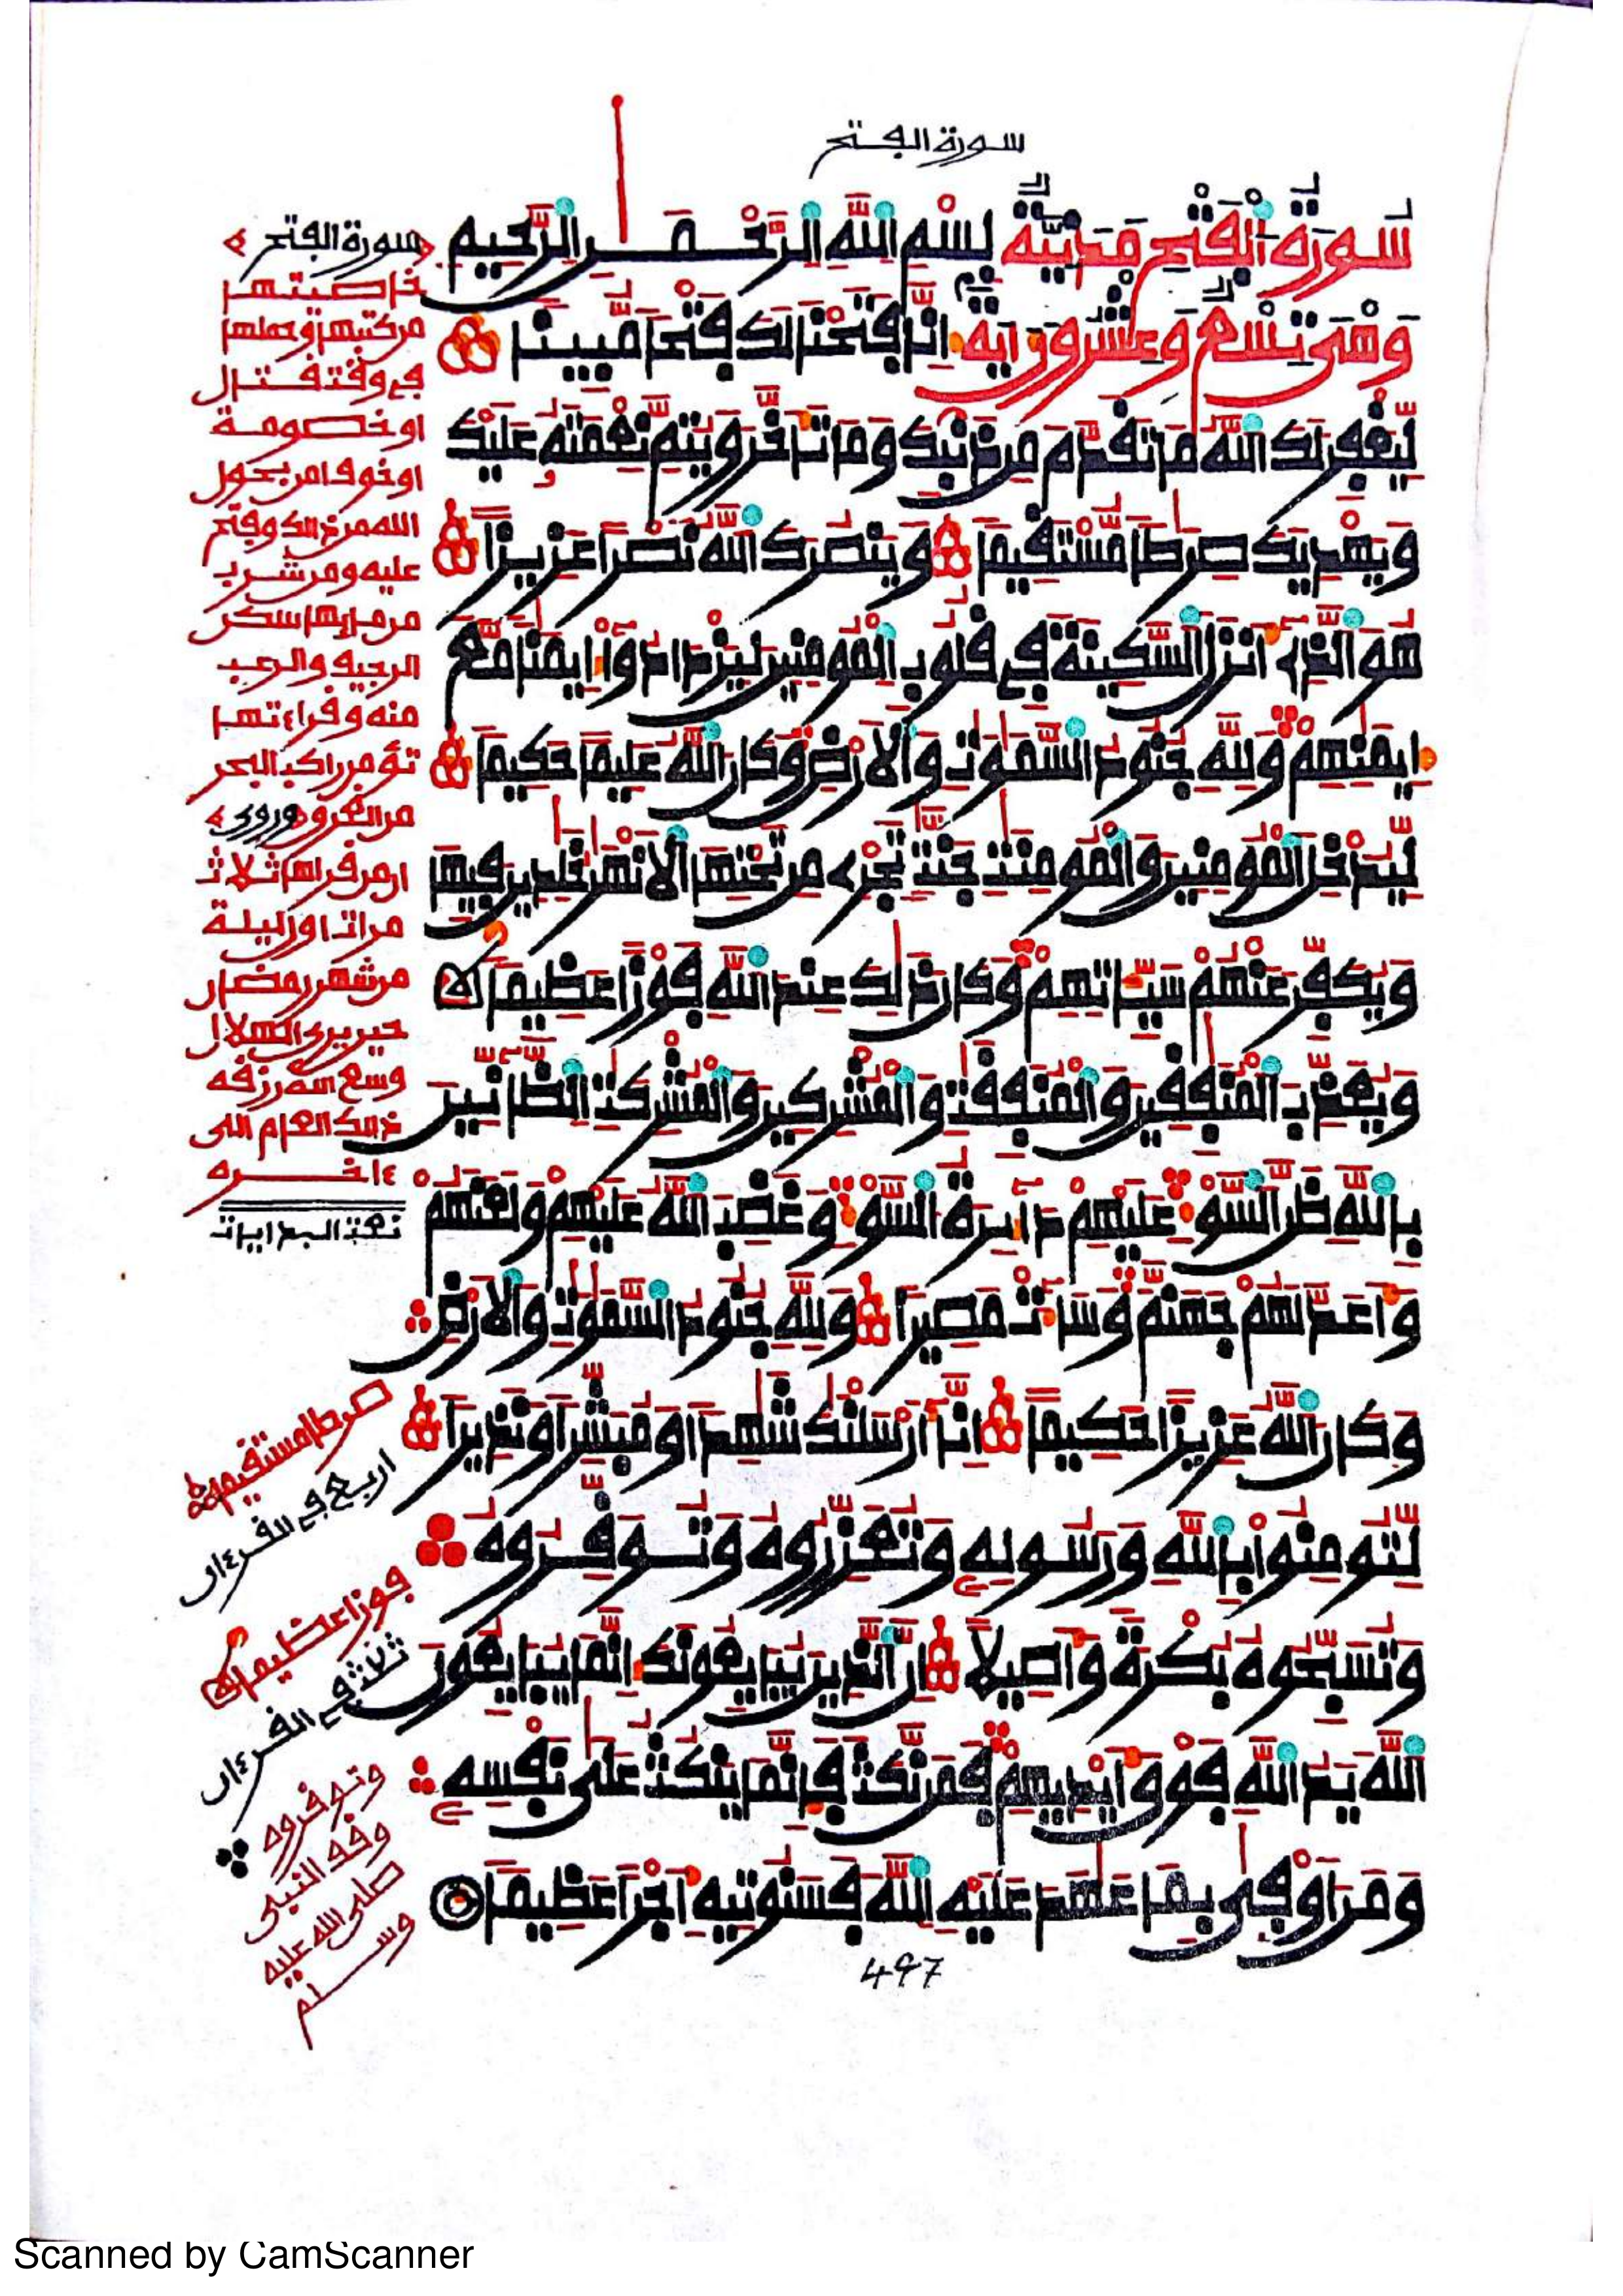 سورة الفتح
سُورَةُ الْفَتْحِ مَدَنِيَّةٌ بِسْمِ اللَّهِ الرَّحْمَنِ الرَّحِيمِ
وَهْىَ تِسْعٌ وَعِشْرُونَ ايَةً اِنَّا فَتَحْنَا لَكَ فَتْحًا مُّبِينًا
لِّيَغْفِرَ لَكَ اللَّهُ مَا تَقَدَّمَ مِن ذَنۢبِكَ وَمَا تَأَخَّرَ وَيُتِمَّ نِعْمَتَهُۥ عَلَيْكَ
وَيَهْدِيَكَ صِرَٰطًا مُّسْتَقِيمًا وَيَنصُرَكَ اللَّهُ نَصْرًا عَزِيزًا
هُوَ الَّذِےٓ أَنزَلَ السَّكِينَةَ فِے قُلُوبِ الْمُومِنِينَ لِيَزْدَادُوٓاْ إِيمَٰنًا مَّعَ
إِيمَٰنِهِمْ وَلِلَّهِ جُنُودُ السَّمَٰوَٰتِ وَالَارْضِ وَكَانَ اللَّهُ عَلِيمًا حَكِيمًا
لِّيُدْخِلَ الْمُومِنِينَ وَالْمُومِنَٰتِ جَنَّٰتٍ تَجْرِے مِن تَحْتِهَا الَانْهَٰرُ خَٰلِدِينَ فِيهَا
وَيُكَفِّرَ عَنْهُمْ سَيِّـَٔاتِهِمْ وَكَانَ ذَٰلِكَ عِندَ اللَّهِ فَوْزًا عَظِيمًا
وَيُعَذِّبَ الْمُنَٰفِقِينَ وَالْمُنَٰفِقَٰتِ وَالْمُشْرِكِينَ وَالْمُشْرِكَٰتِ الظَّآنِّينَ
بِاللَّهِ ظَنَّ السَّوْءِ عَلَيْهِمْ دَآئِرَةُ السَّوْءِ وَغَضِبَ اللَّهُ عَلَيْهِمْ وَلَعَنَهُمْ
وَأَعَدَّ لَهُمْ جَهَنَّمَ وَسَآءَتْ مَصِيرًا وَلِلَّهِ جُنُودُ السَّمَٰوَٰتِ وَالَارْضِ
وَكَانَ اللَّهُ عَزِيزًا حَكِيمًا اِنَّآ أَرْسَلْنَٰكَ شَٰهِدًا وَمُبَشِّرًا وَنَذِيرًا
لِّتُومِنُواْ بِاللَّهِ وَرَسُولِهِۦ وَتُعَزِّرُوهُ وَتُوَقِّرُوهُ
وَتُسَبِّحُوهُ بُكْرَةً وَأَصِيلًا اِنَّ الَّذِينَ يُبَايِعُونَكَ إِنَّمَا يُبَايِعُونَ
اللَّهَ يَدُ اللَّهِ فَوْقَ أَيْدِيهِمْ فَمَن نَّكَثَ فَإِنَّمَا يَنكُثُ عَلَىٰ نَفْسِهِۦ
وَمَنَ اوْفَىٰ بِمَا عَٰهَدَ عَلَيْهِ اللَّهَ فَسَنُوتِيهِ أَجْرًا عَظِيمًا
497
سورة الفتح
خاصيتها
من كتبها وحملها
في وقت قتال
او خصومة
او خوف امن بحول
الله من ذلك وفتح
عليه ومن شرب
من مايها سكن
الرجيف والرعب
منه وقراءتها
تؤمن راكب البحر
من الغرق وروى
ان من قراها ثلاث
مرات اول ليلة
من شهر رمضان
حين يرى الهلال
وسع الله رزقه
ذلك العام الى
ءاخره
صرطا مستقيما
اربع في القرءان
فوزا عظيما
ثلاث في القرءان
وتوقروه
وقف النبي
صلى الله عليه
وسلم
Scanned by CamScanner